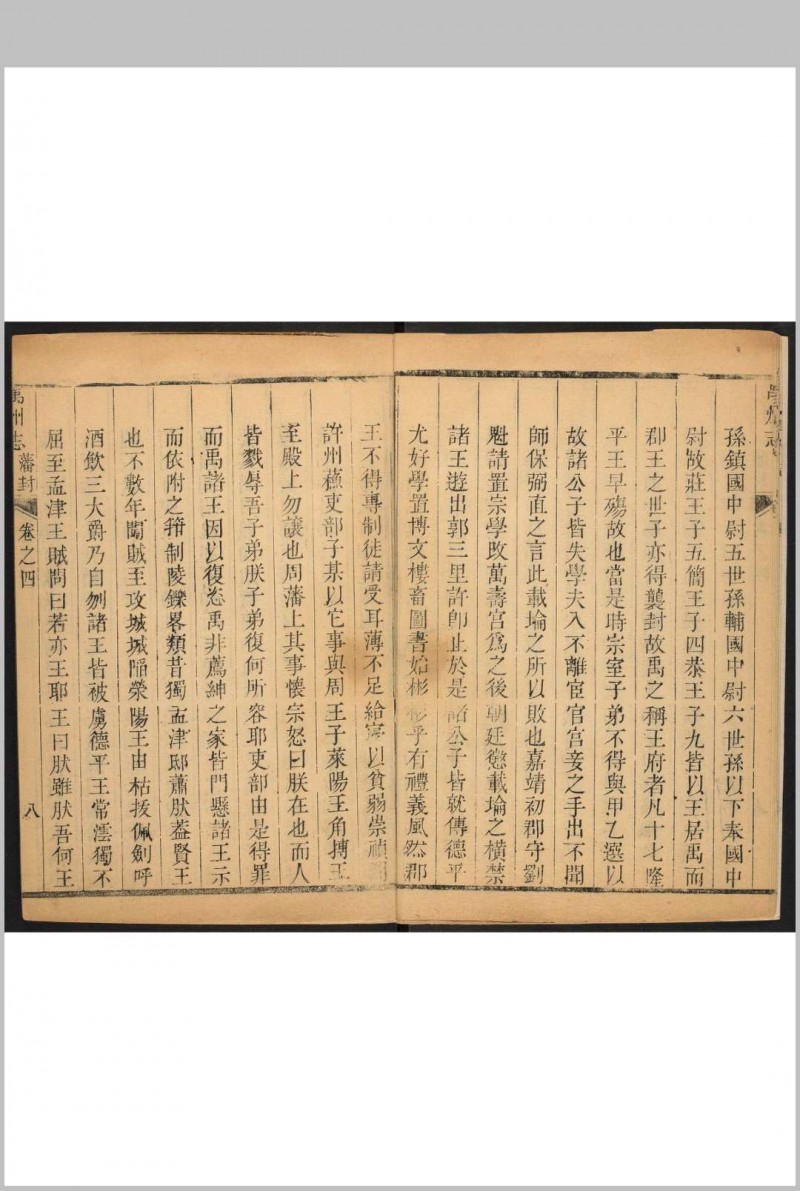 孫鎮國中尉五世孫輔國中尉六世孫以下奉國中
尉故莊王子五簡王子四恭王子九皆以王居禹而
郡王之世子亦得襲封故禹之稱王府者凡十七隆
平王早殤故也當是時宗室子弟不得與甲乙選以
故諸公子皆失學夫入不離宦官宮妾之手出不聞
師保弼直之言此載埨之所以敗也嘉靖初郡守劉
魁請置宗學改萬壽宮為之後朝廷懲載埨之橫禁
諸王遊出郭三里許即止於是諸公子皆就傳德平
尤好學置博文樓畜圖書始彬彬乎有禮義風然郡
王不得專制徒請受耳薄不足給宗以貧弱崇禎
許州蘓吏部子某以它事與周王子萊陽王角摶王
至殿上勿讓也周藩上其事懷宗怒曰朕在也而人
皆戮辱吾子弟朕子弟復何所容耶吏部由是得罪
而禹諸王因以復恣禹非薦紳之家皆門懸諸王示
而依附之箝制陵鑠畧類昔獨孟津邸肅朕葢賢王
也不數年闖賊至攻城城陷滎陽王由枯拔佩劍呼
酒飲三大爵乃自刎諸王皆被虜德平王常澐獨不
屈至孟津王賊問曰若亦王耶王曰朕雖朕吾何王
禹州志 藩封 卷之四 八